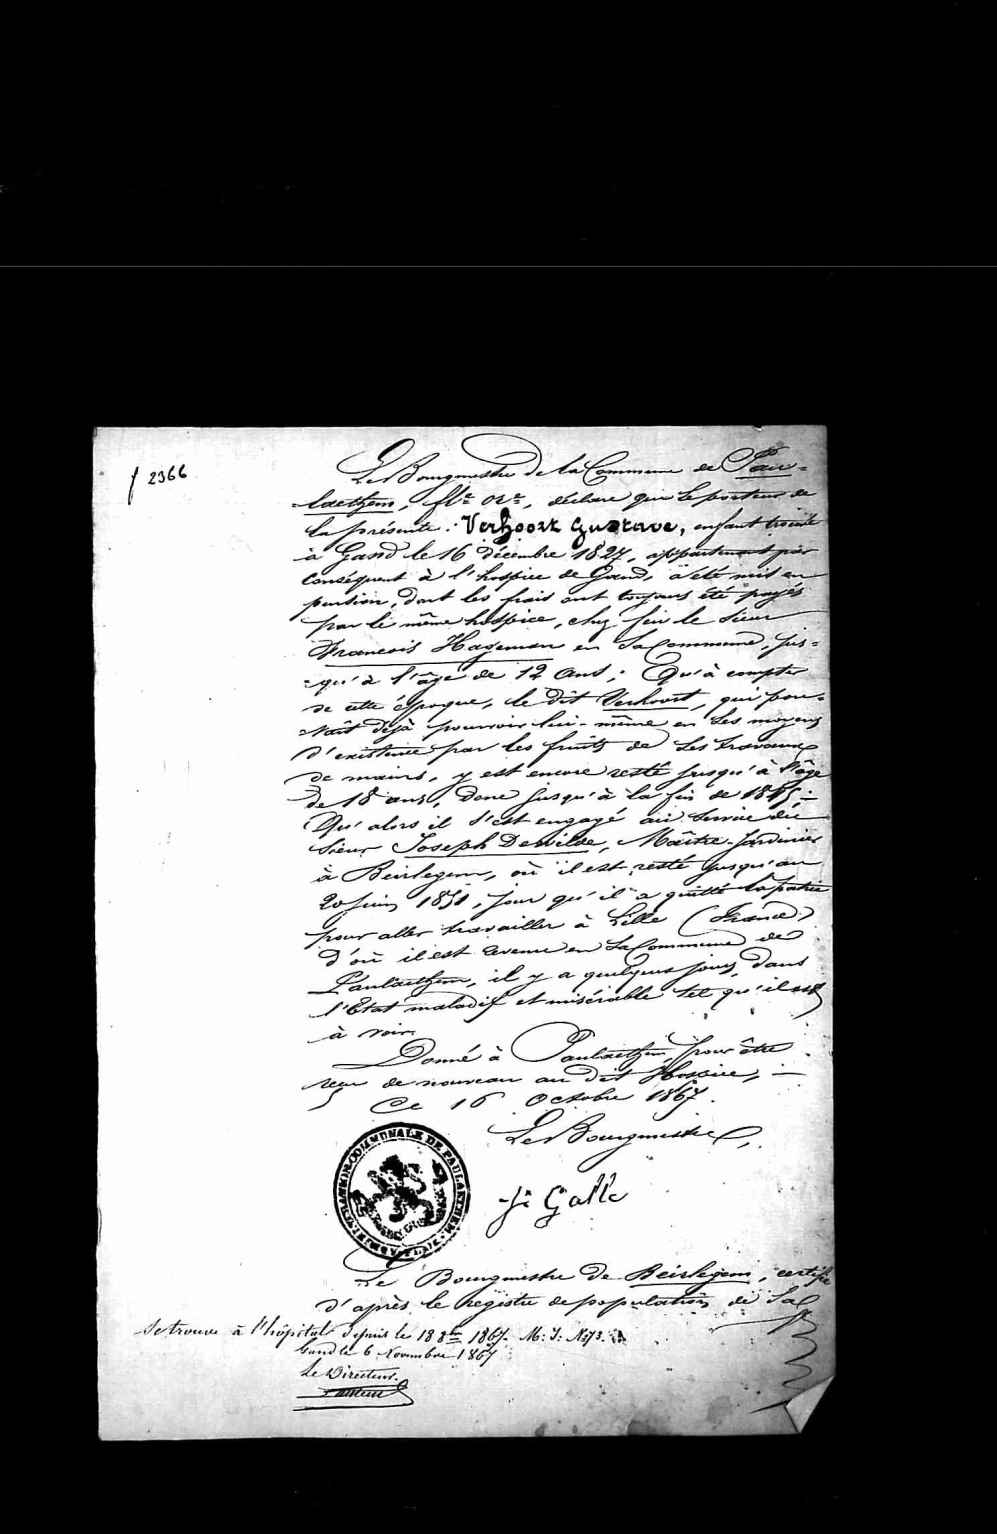 f 2366
Le Bourgmestre de la Commune de Pau-
laethem, fl.re or.le, déclare que le porteur de
la présente : Verhoort Gustave, enfant trouvé
à Gand le 16 décembre 1827, appartenant par
conséquent à l'hospice de Gand, a été mis en
pension, dont les frais ont toujours été payés
par le même hospice, chez feu le sieur
Francois Hageman en sa Commune, jus-
qu'à l'âge de 12 ans ; Qu'à compter
de cette époque, le dit Verhoort, qui pou-
vait déjà pourvoir lui-même en ses moyens
d'existence par les fruits de ses travaux
de mains, y est encore resté jusqu'à l'âge
de 18 ans, donc jusqu'à la fin de 1845 ;
Qu'alors il s'est engagé au service du
sieur Joseph Dewilde, Maître-Jardinier
à Beirlegem, où il est resté jusqu'au
20 juin 1851, jour qu'il a quitté la patrie
pour aller travailler à Lille (France)
d'où il est revenu en sa Commune de
Paulaethem, il y a quelques jours, dans
l'Etat maladif et misérable tel qu'il est
à voir.
Donné à Paulaethem, pour être
reçu de nouveau au dit Hospice,
Ce 16 Octobre 1867.
Le Bourgmestre,
ADMINISTRATION COMMUNALE DE PAULAETHEM
J: Galle
Le Bourgmestre de Beirlegem, certifie
d'après le registre de population de sa
Se trouve à l'hôpital depuis le 18 8bre 1867. M: I: No 73.
Gand le 6 Novembre 1867
Le Directeur.